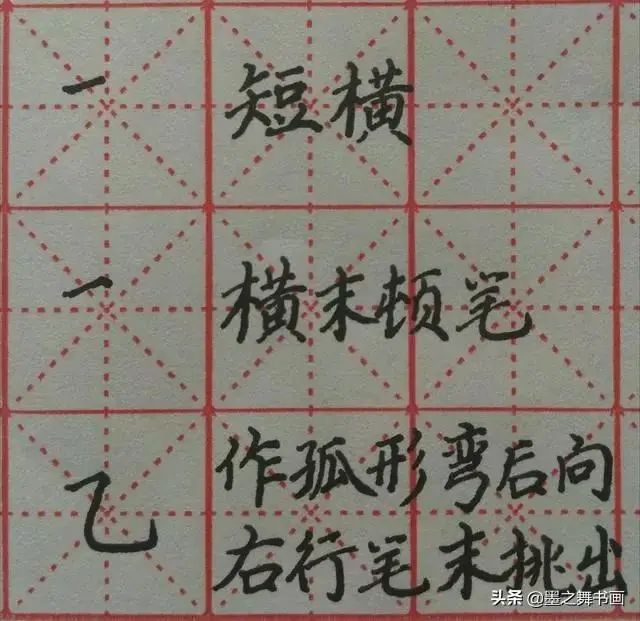 一 短横
一 横末顿笔
乙 作孤形弯后向
右行笔末挑出
头条 @墨之舞书画